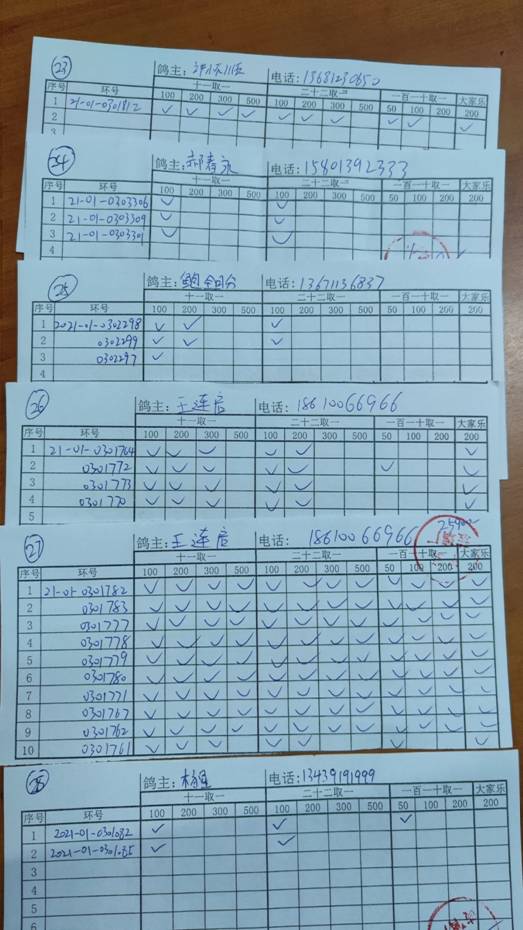 23 鸽主: 电话: 13681230850
序号 环号 十一取一 二十二取一 一百一十取一 大家乐
100 200 300 500 100 200 300 500 50 100 200 200
1 21-01-0301812
2
3
24 鸽主: 郝春永 电话: 15801392333
序号 环号 十一取一 二十二取一 一百一十取一 大家乐
100 200 300 500 100 200 300 500 50 100 200 200
1 21-01-0303306
2 21-01-0303309
3 21-01-0303301
4
25 鸽主: 电话: 13671136837
序号 环号 十一取一 二十二取一 一百一十取一 大家乐
100 200 300 500 100 200 300 500 50 100 200 200
1 2021-01-0302298
2 0302299
3 0302297
26 鸽主: 王连启 电话: 18610066966
序号 环号 十一取一 二十二取一 一百一十取一 大家乐
100 200 300 500 100 200 300 500 50 100 200 200
1 21-01-0301764
2 0301772
3 0301773
4 0301770
5
27 鸽主: 王连启 电话: 18610066966
序号 环号 十一取一 二十二取一 一百一十取一 大家乐
100 200 300 500 100 200 300 500 50 100 200 200
1 21-01-0301782
2 0301783
3 0301777
4 0301778
5 0301779
6 0301780
7 0301771
8 0301767
9 0301762
10 0301761
28 鸽主: 电话: 13439191999
序号 环号 十一取一 二十二取一 一百一十取一 大家乐
100 200 300 500 100 200 300 500 50 100 200 200
1 2021-01-0301082
2 2021-01-0301085
3
4
5
6